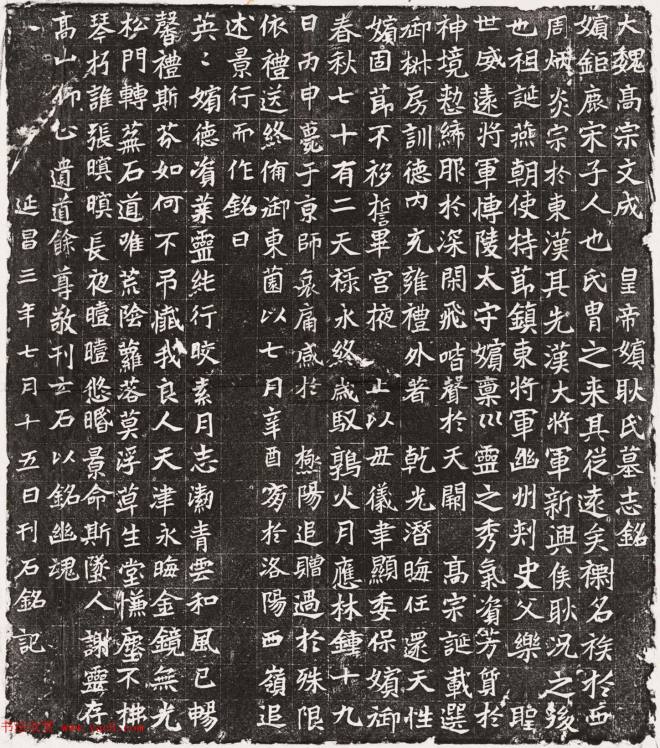 大魏高宗文成　皇帝嬪耿氏墓志銘
嬪鉅鹿宋子人也氏胄之来其従遠矣襴名族於西
周炳炎宗於東漢其先漢大將軍新興侯耿况之後
也祖誕燕朝使持莭鎮東將軍幽州刾史父樂　聖
世威遠將軍愽陵太守嬪禀巛靈之秀氣資芳質於
神境懃締服於深閑飛喈聲於天閞　髙宗誕載選
御椒房訓德内充雍禮外著　乾光潛晦任還天性
嬪固莭不移誓畢宮掖　上以毋儀聿顯委保嬪御
春秋七十有二天禄永終歳馭鶉火月應林鍾十九
日丙申薨于京師哀痛慼於　極陽追贈過於殊限
依禮送終俻御東薗以七月辛酉窆於洛陽西嶺追
述景行而作銘曰
英〻嬪德資萊靈純行晈素月志潄青雲和風已暢
馨禮斯芬如何不吊懺我良人天津永晦金鏡無光
松門轉蕪石道唯荒陰蘿落莫浮草生堂慊塵不拂
琴朽誰張暝暝長夜曀曀悠昏景命斯墜人謝靈存
髙山仰止遺道餘尊敬刊玄石以銘幽魂
延昌三年七月十五日刊石銘記